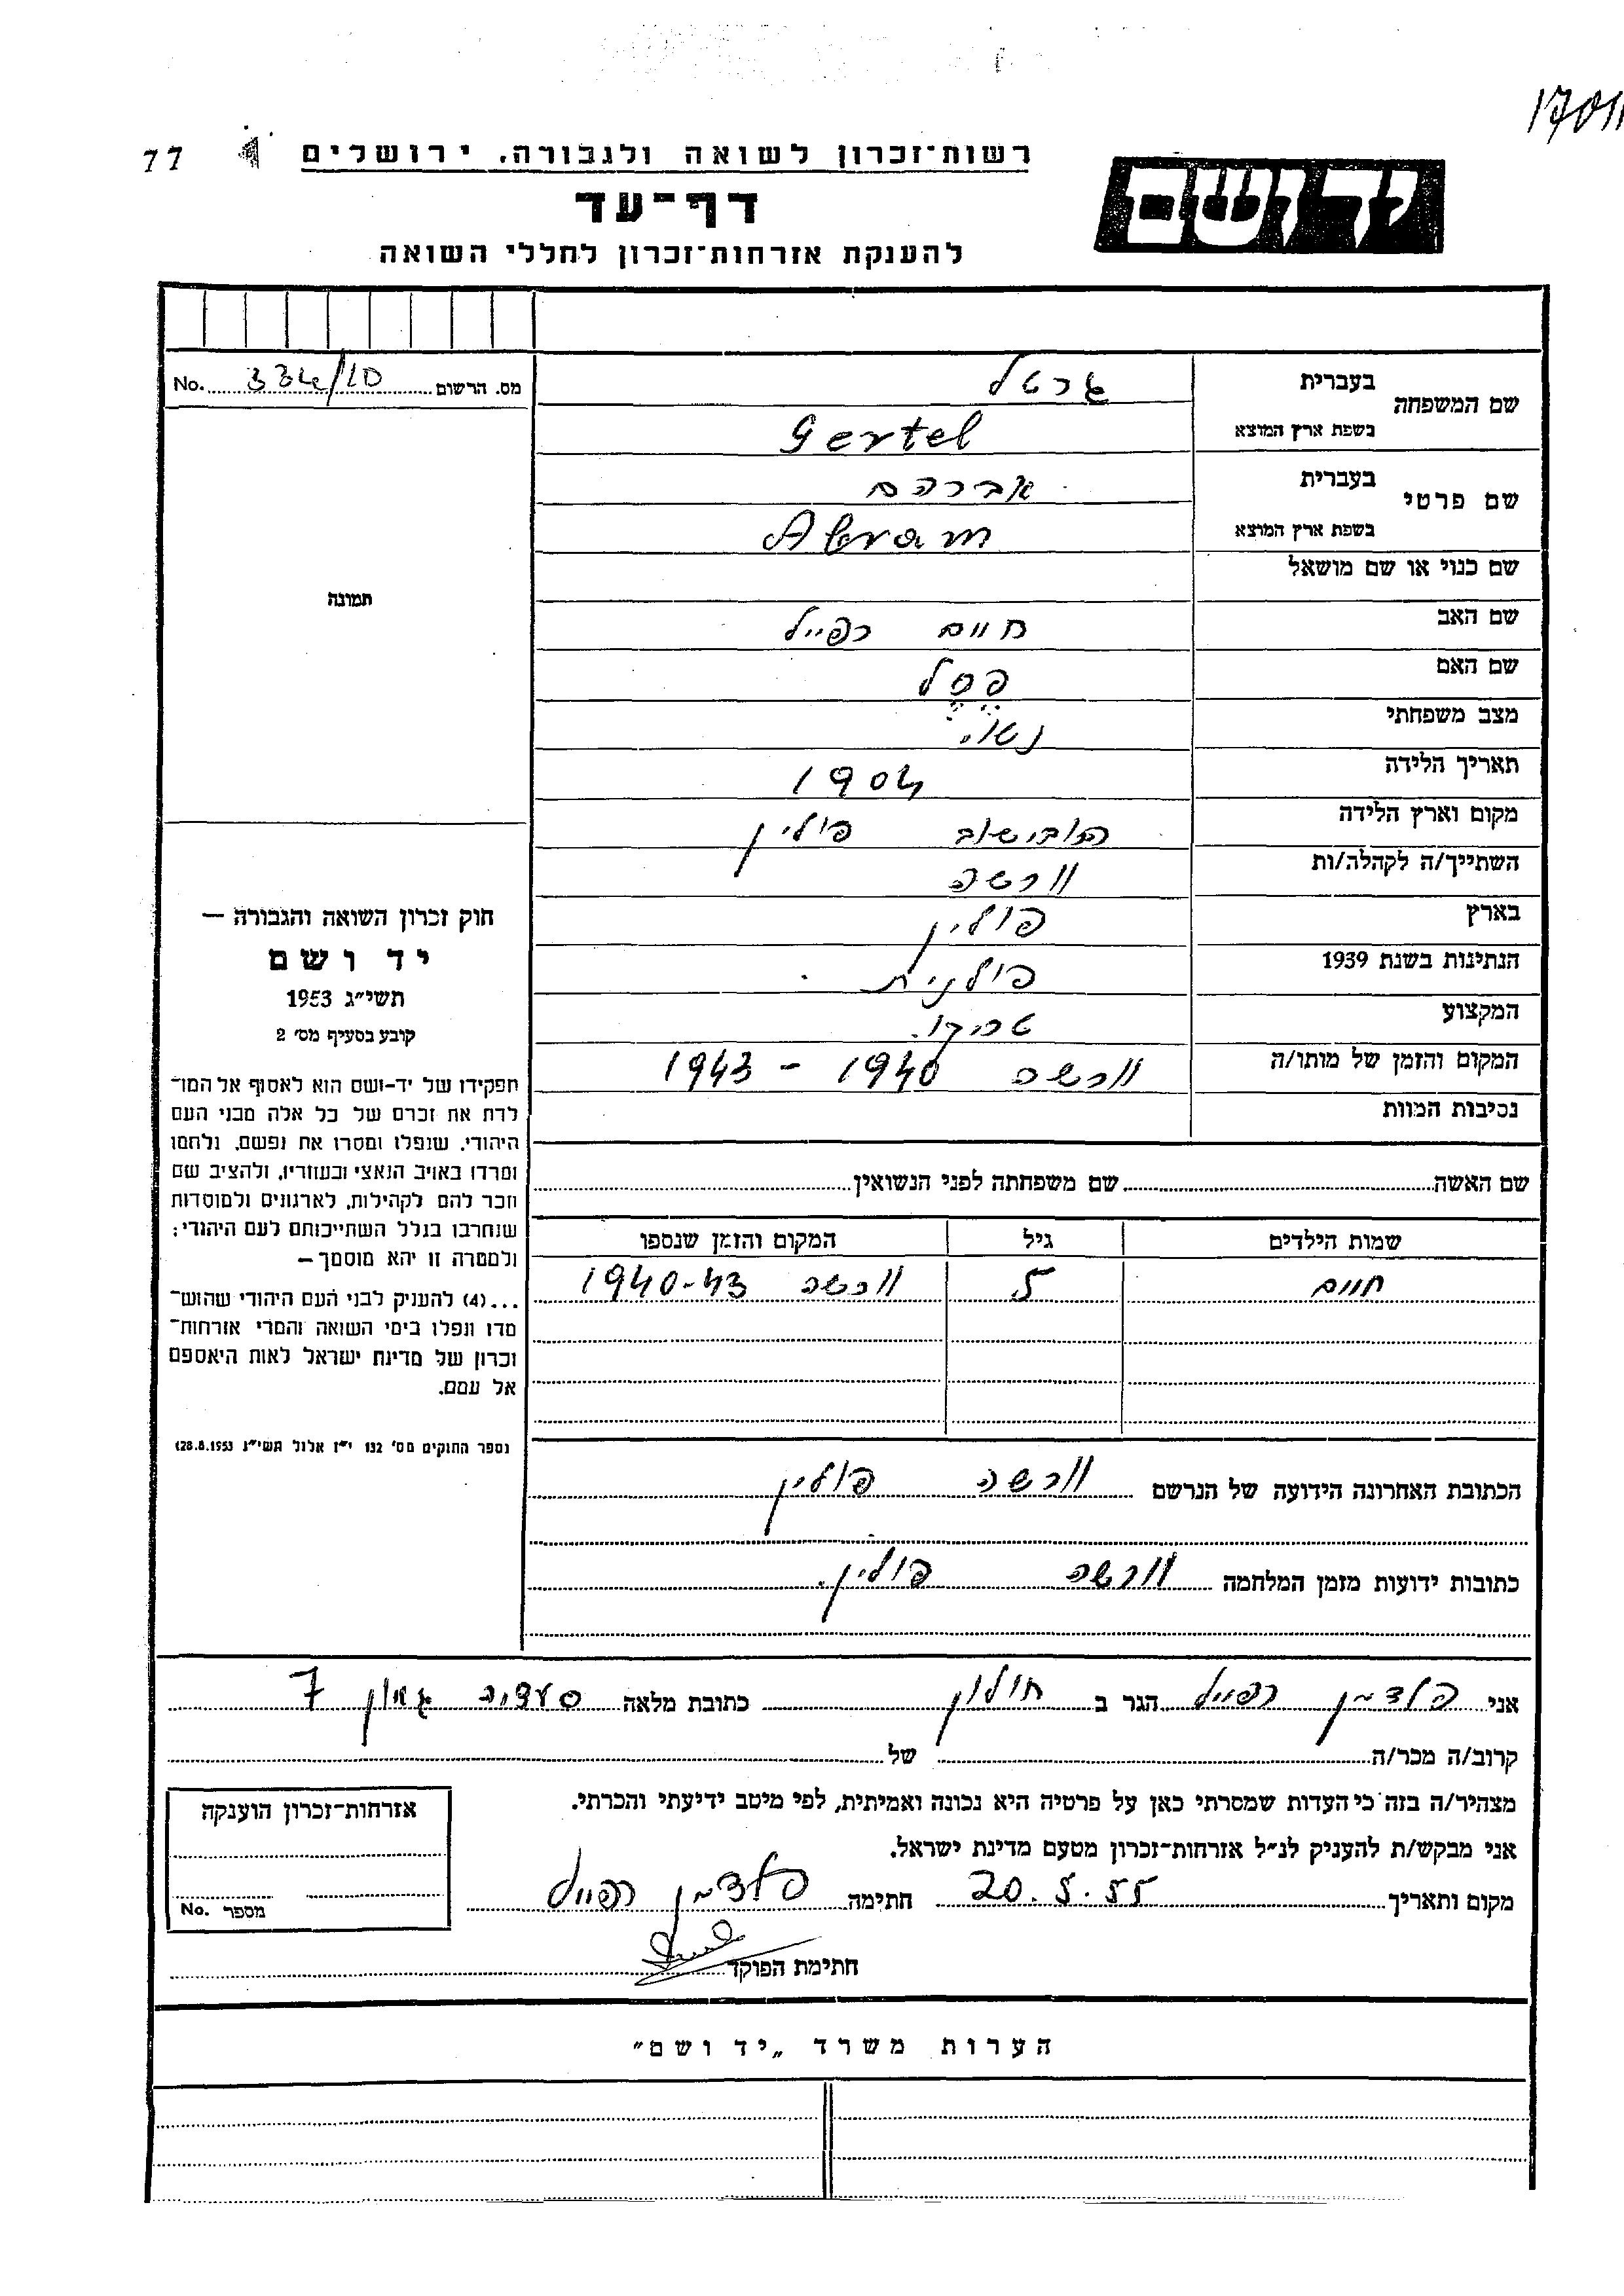 רשות־זכרון לשואה ולגבורה. ירושלים
77
ידושם
דף־עד
להענקת אזרחות־זכרון לחללי השואה
מס. הרשום 334/10 No.
שם המשפחה בעברית גרטל
בשפת ארץ המוצא Gertel
שם פרטי בעברית אברהם
בשפת ארץ המוצא Abram
שם כנוי או שם מושאל
תמונה
שם האב חיים רפייל
שם האם פסל
מצב משפחתי נשוי
תאריך הלידה 1904
מקום וארץ הלידה פולין
השתייך/ה לקהלה/ות וורשה
בארץ פולין
הנתינות בשנת 1939 פולנית
המקצוע
המקום והזמן של מותו/ה וורשה 1940 - 1943
נסיבות המוות
שם האשה שם משפחתה לפני הנשואין
שמות הילדים גיל המקום והזמן שנספו
חיים 5 וורשה 1940-43
חוק זכרון השואה והגבורה —
יד ושם
תשי״ג 1953
קובע בסעיף מס׳ 2
תפקידו של יד-ושם הוא לאסוף אל המו־
לדת את זכרם של כל אלה מבני העם
היהודי. שנפלו ומסרו את נפשם, נלחמו
ומרדו באויב הנאצי ובעוזריו, ולהציב שם
וזכר להם לקהילות, לארגונים ולמוסדות
שנחרבו בגלל השתייכותם לעם היהודי;
ולמטרה זו יהא מוסמך—
...(4) להענית לבני העם היהודי שהוש־
מדו ונפלו בימי השואה והמרי אזרחות־
זכרון של מדינת ישראל לאות היאספם
אל עמם.
(ספר החוקים מס׳ 132 י״ז אלול תשי״ג 28.8.1953)
הכתובת האחרונה הידועה של הנרשם וורשה פולין
כתובות ידועות מזמן המלחמה וורשה פולין.
אני פלדמן רפייל הגר ב חולון כתובת מלאה סעדיה גאון 7
קרוב/ה מכר/ה של
מצהיר/ה בזה כי העדות שמסרתי כאן על פרטיה היא נכונה ואמיתית, לפי מיטב ידיעתי והכרתי.
אני מבקש/ת להעניק לנ״ל אזרחות־זכרון מטעם מדינת ישראל.
מקום ותאריך 20.5.55 חתימה פלדמן רפייל
חתימת הפוקד
אזרחות־זכרון הוענקה
מספר No.
הערות משרד „יד ושם״